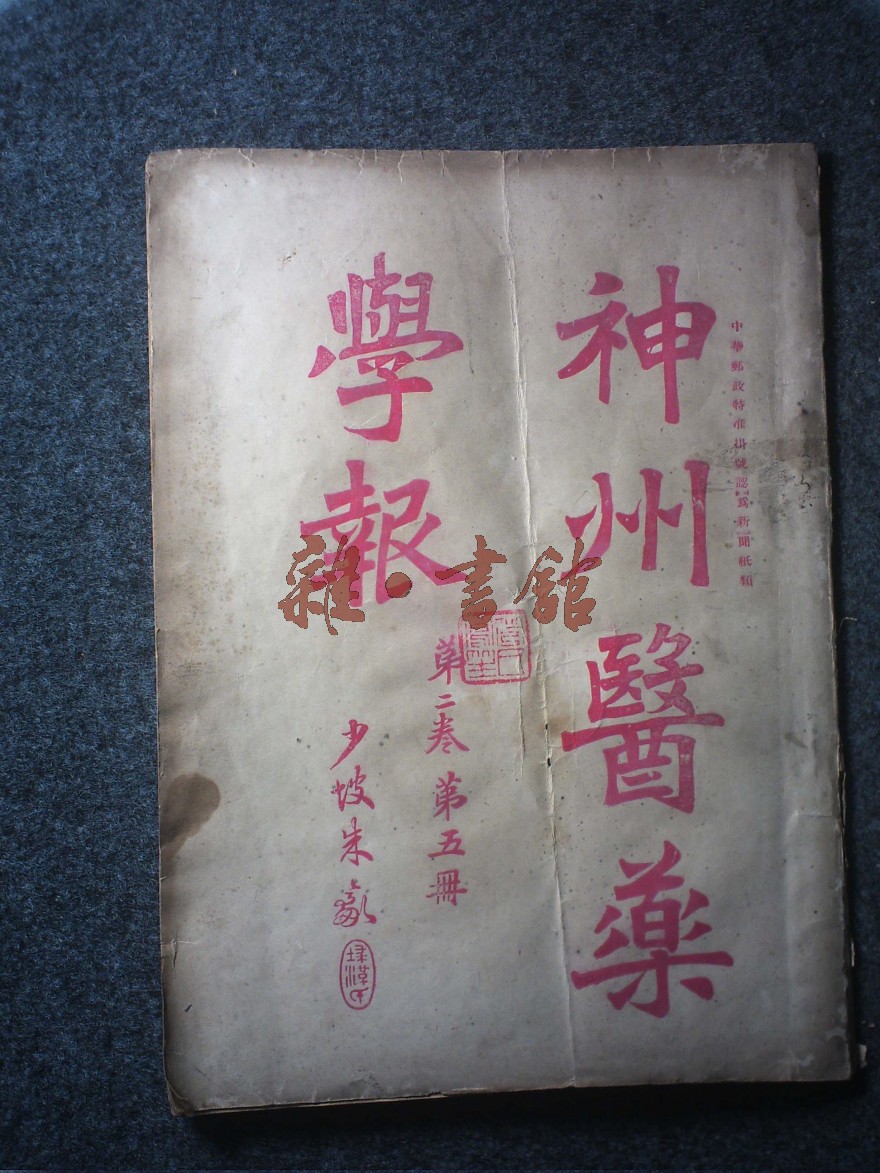 中華郵政特准掛號認爲新聞紙類
神州醫藥
學報
第二卷 第五冊
少坡朱
雜·書館